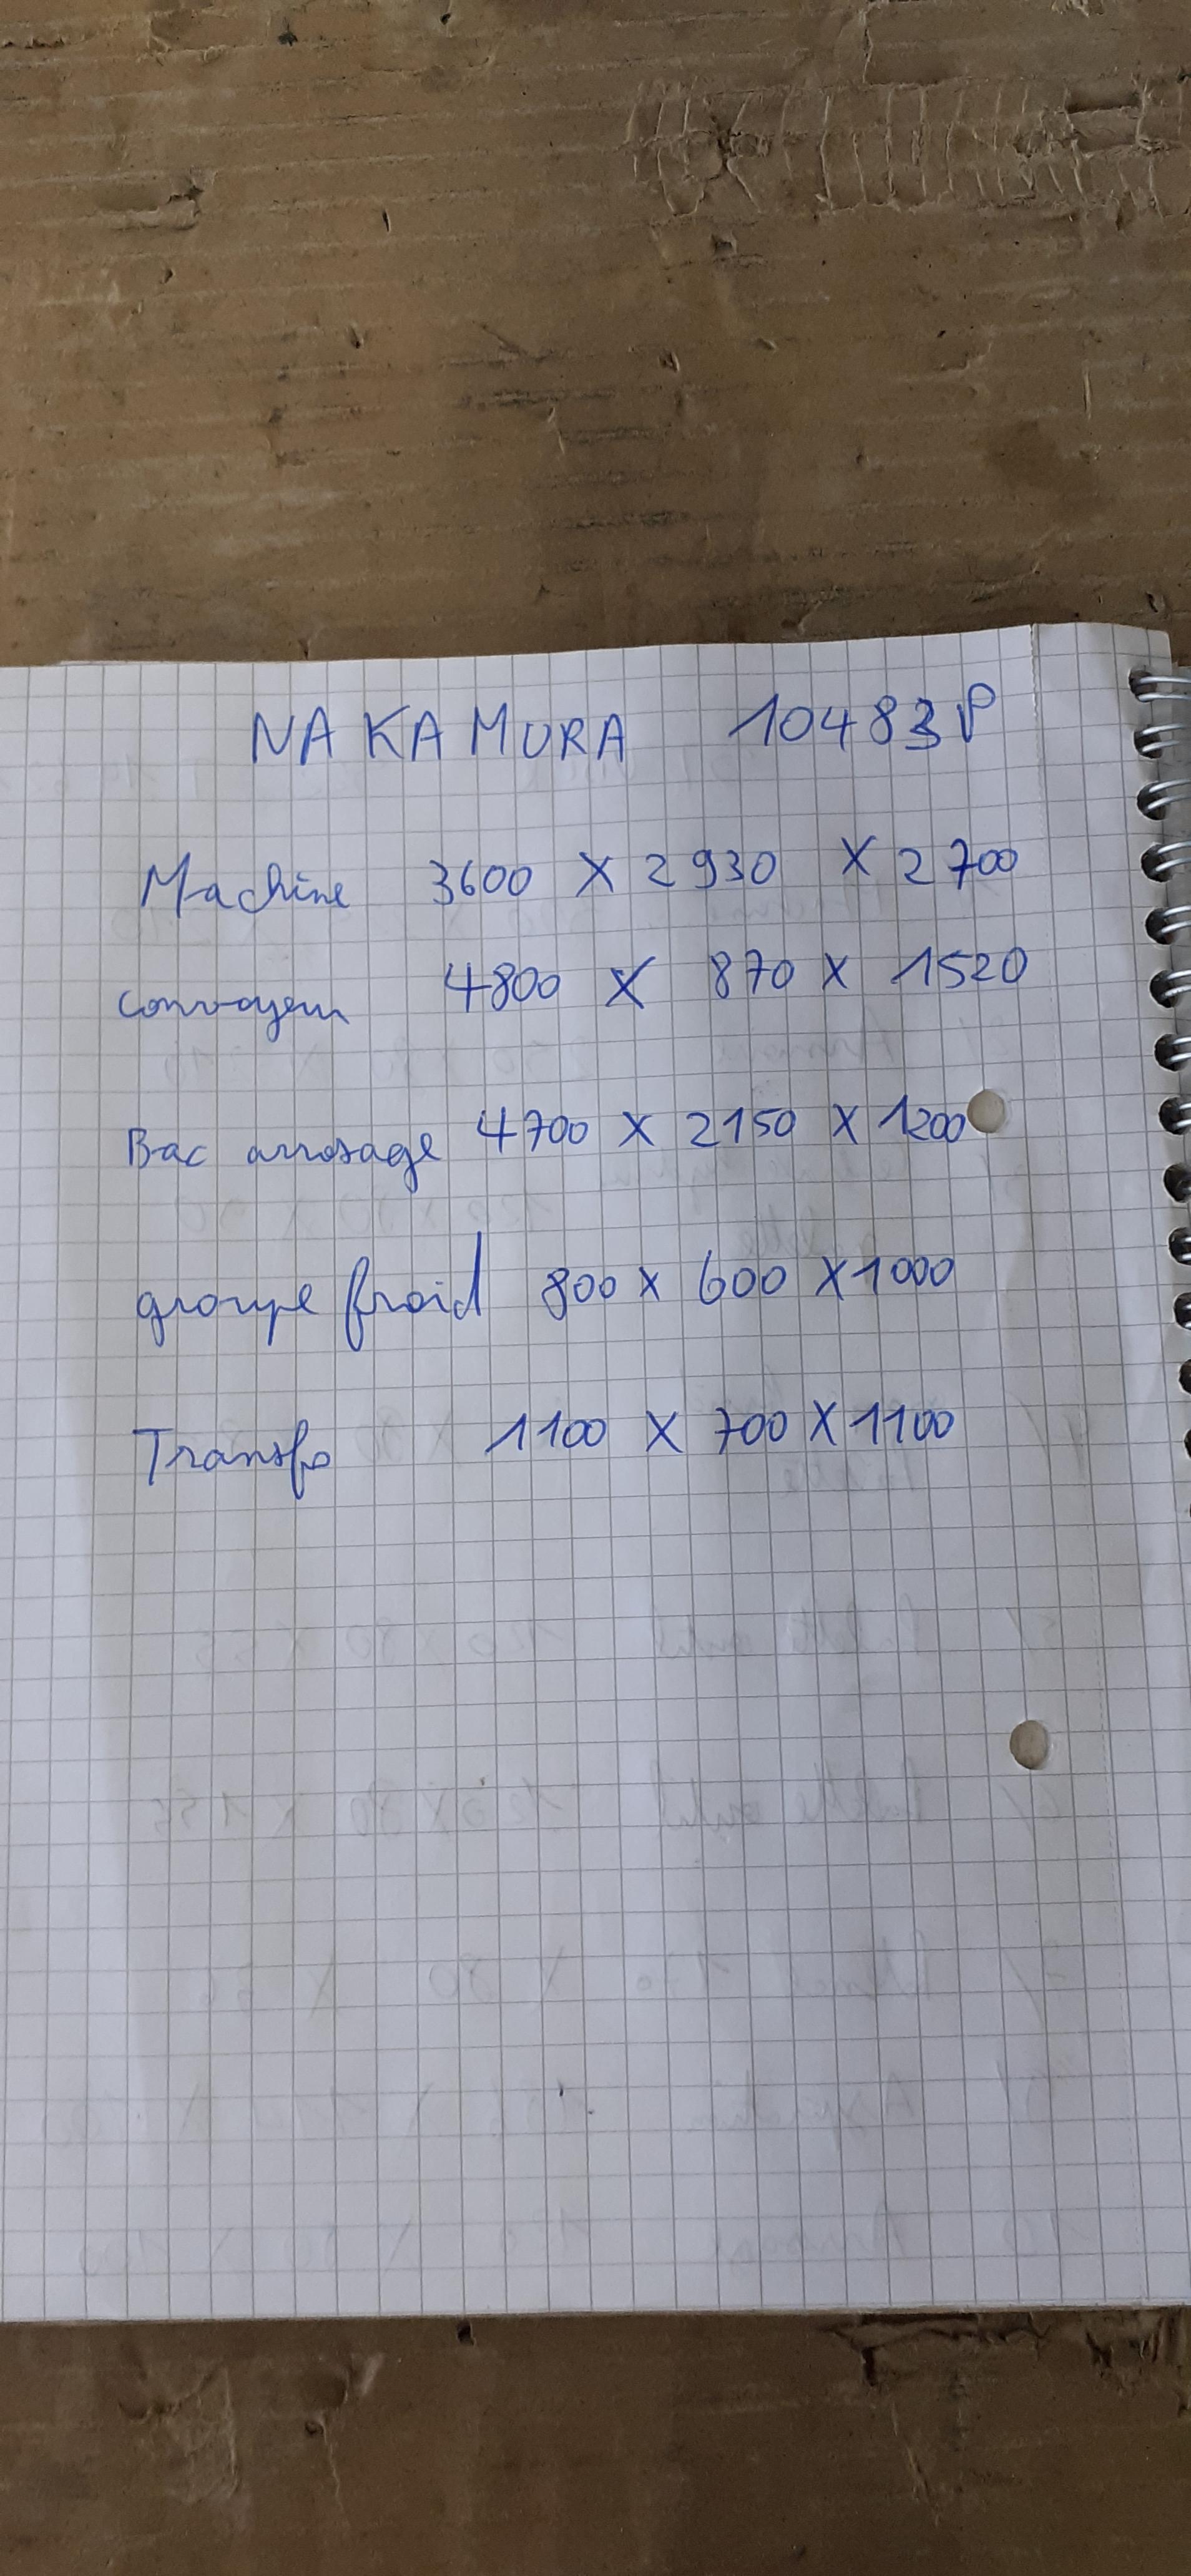 NAKAMURA 10483P
Machine 3600 X 2930 X 2700
convoyeur 4800 X 870 X 1520
Bac arrosage 4700 X 2150 X 1200
groupe froid 800 X 600 X 1000
Transfo 1100 X 700 X 1100